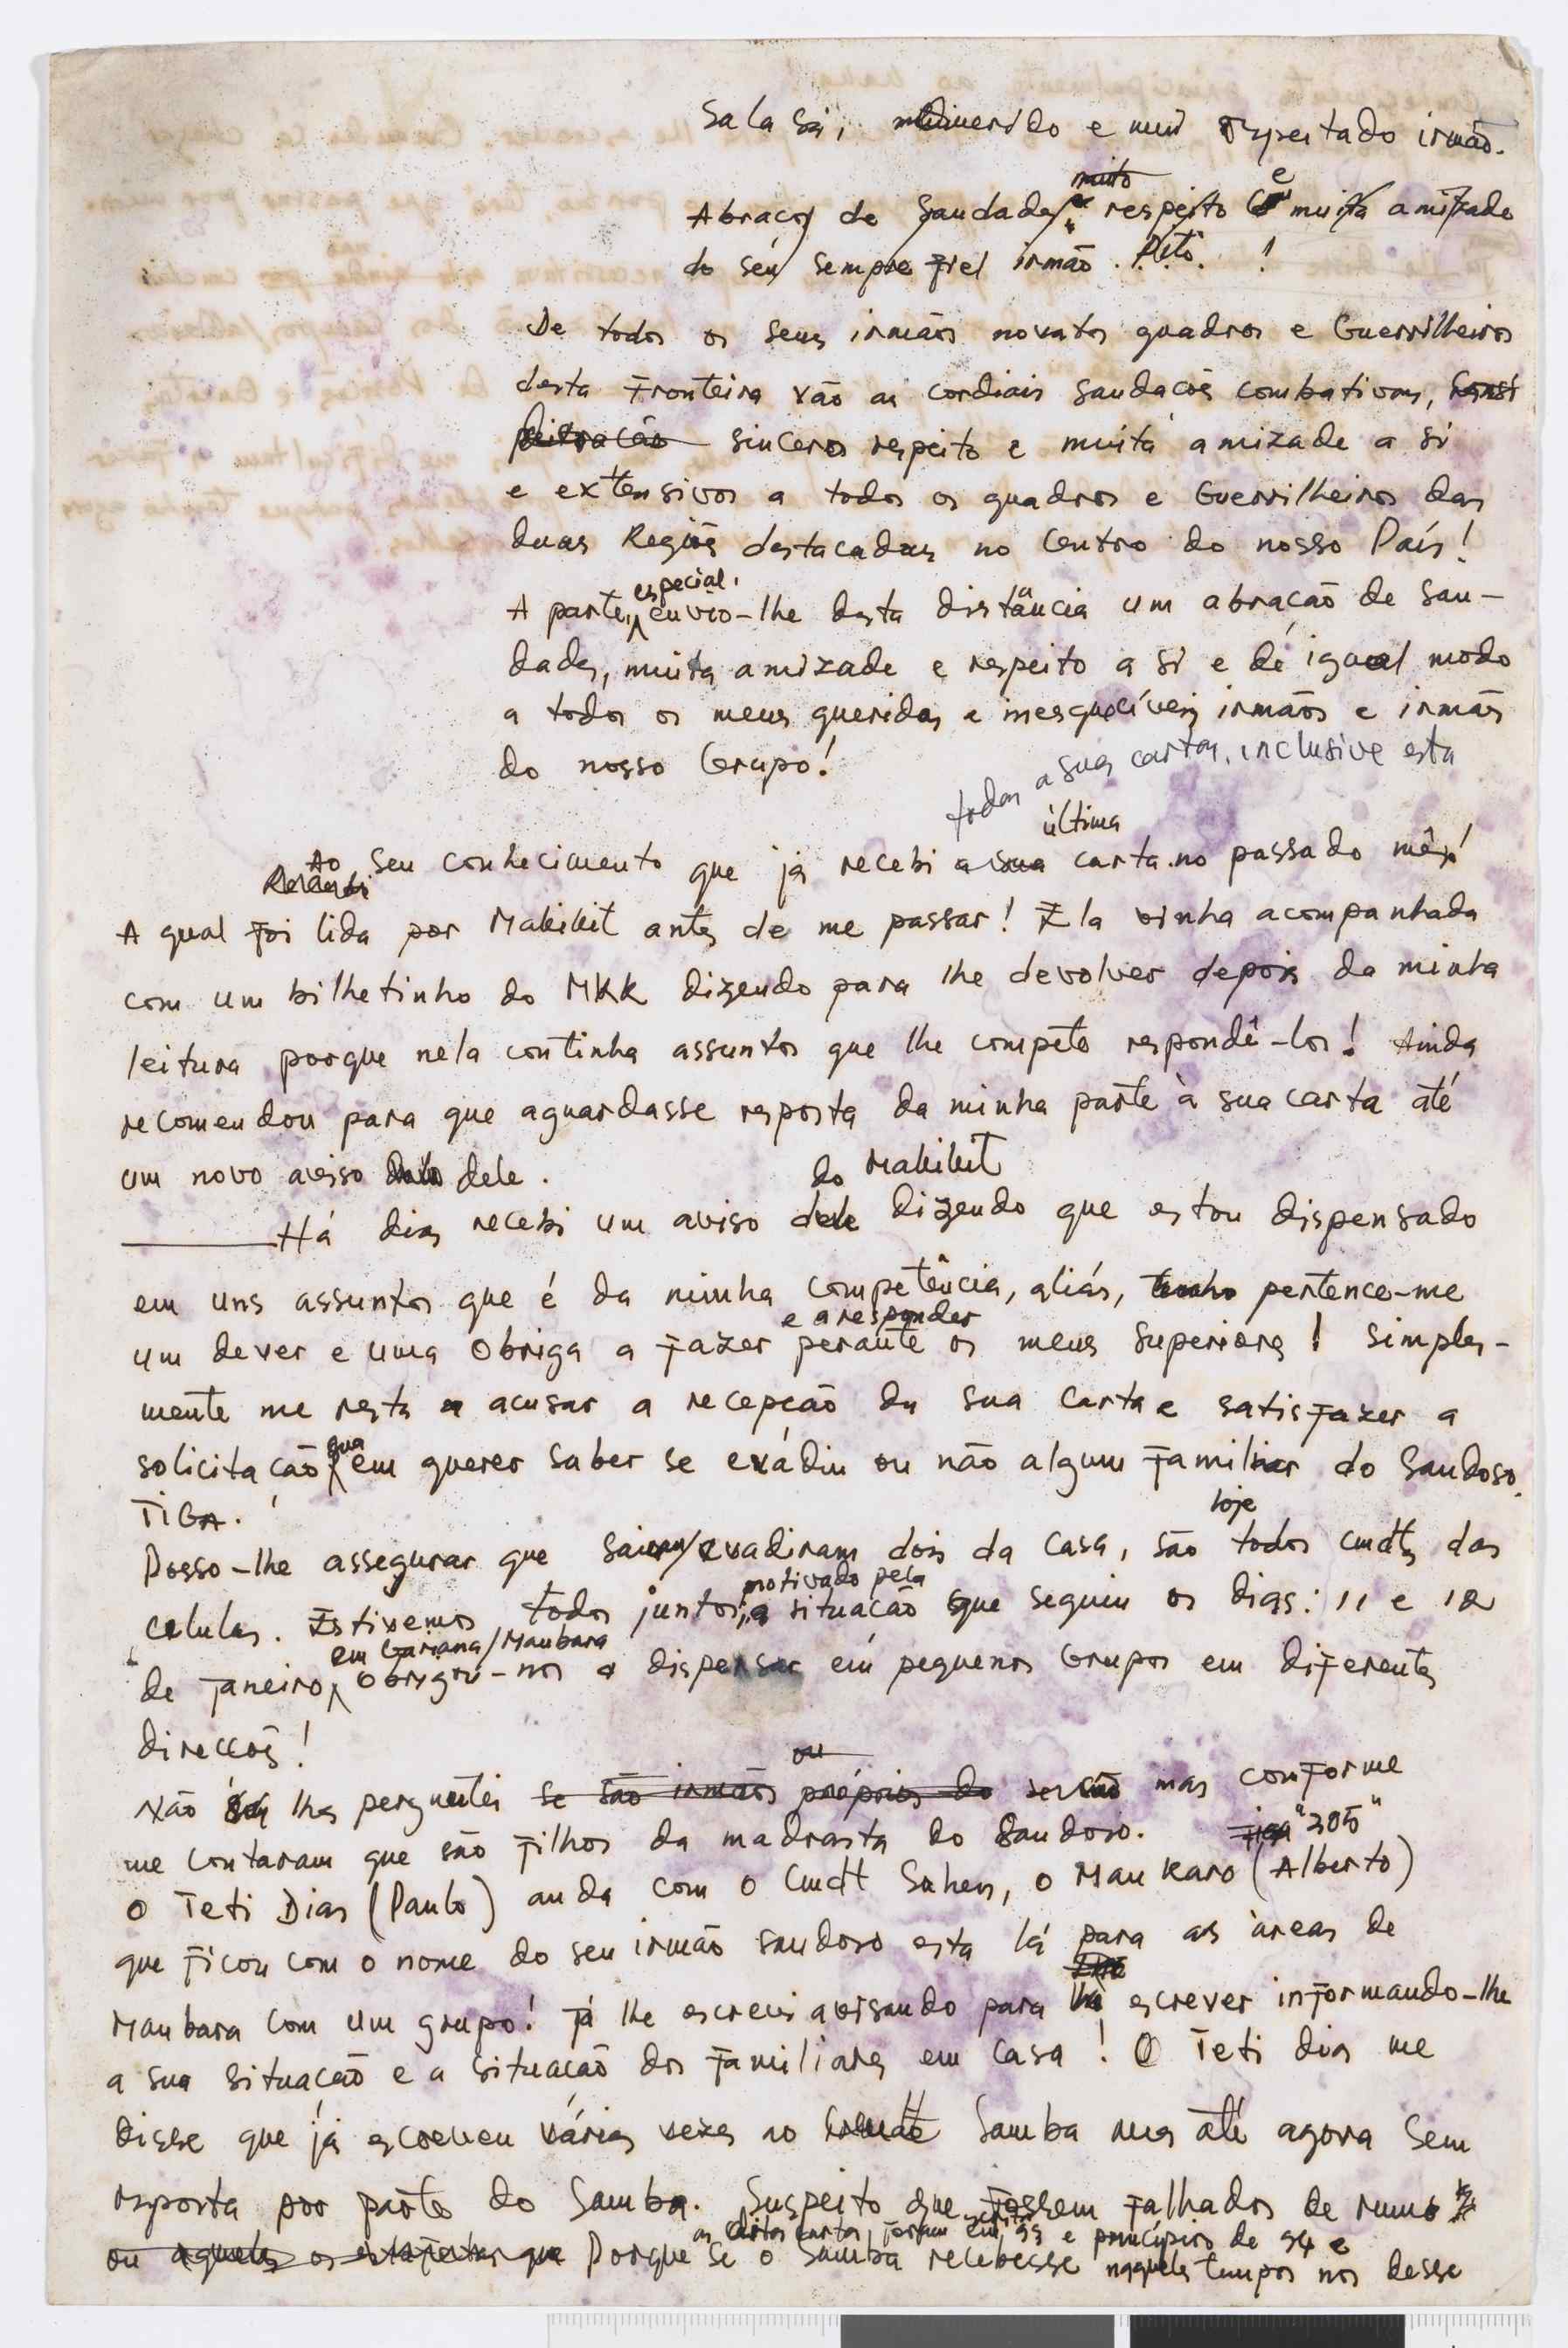 Sala Sá, e mui respeitado irmão.
muito
Abraços de Saudades, respeito e muita amizade
do séu sempre fiel irmão. Pitó. !
De todos os seus irmãos novatos quadros e Guerrilheiros
desta Fronteira vão as cordiais saudacões combativas, Consi
deiração sinceros respeito e muita amizade a si
e extensivos a todos os quadros e Guerrilheiros das
duas Regiõs destacadas no Centro do nosso País!
especial,
A parte, envio-lhe desta distância um abração de Sau-
dades, muita amizade e respeito a si e de igual modo
a todos os meus queridos e inesquecíveis irmãos e irmãs
do nosso Grupo!
todas a suas cartas, inclusive esta
última
Ao Seu conhecimento que já recebi a sua carta no passado mês!
A qual foi lida por Makikit antes de me passar! Ela vinha acompanhada
com um bilhetinho do MKK dizendo para lhe devolver depois da minha
leitura porque nela continha assuntos que lhe compete respondê-los! Ainda
recomendou para que aguardasse resposta da minha parte à sua carta até
um novo aviso dele.
do Makikit
Há dias recebi um aviso dele dizendo que estou dispensado
em uns assuntos que é da minha competência, aliás, tenho pertence-me
e a responder
um dever e uma Obriga a fazer perante os meus Superiores! Simples-
mente me resta a acusar a recepção da sua Carta e satisfazer a
sua
solicitacão em querer saber se evádiu ou não algum familiar do Saudoso
TIGA.
hoje
Posso-lhe assegurar que sairam/evadiram dois da casa, são todos cmdts das
motivado pela
celulas. Estivemos todos juntos, a situacão que seguiu os dias: 11 e 12
em Gariana/Maubara
de Janeiro, Obrigou-nos a dispersar em pequenos Grupos em diferentes
direccõs!
ou
Não lhes perguntei se são irmãos próprios do mas conforme
me contaram que são filhos da madrasta do Saudoso. Tiga "305"
O Teti Dias (Paulo) anda com o Cmdt Sahen, o Mau Karo (Alberto)
que ficou com o nome do seu irmão saudoso esta lá para as àreas de
Maubara com um grupo! Já lhe escrevi avisando para escrever informando-lhe
a sua situacão e a situacão dos familiares em Casa! O Teti dias me
disse que já escreveu várias vezes ao Cmdt Samba mas até agora Sem
resposta por parte do Samba. Suspeito que fossem falhados de rumo
as ditas cartas, foram escritas em 93 e princípios de 94 e
ou aqueles os estafetas que Porque se o Samba recebesse naqueles tempos nos desse